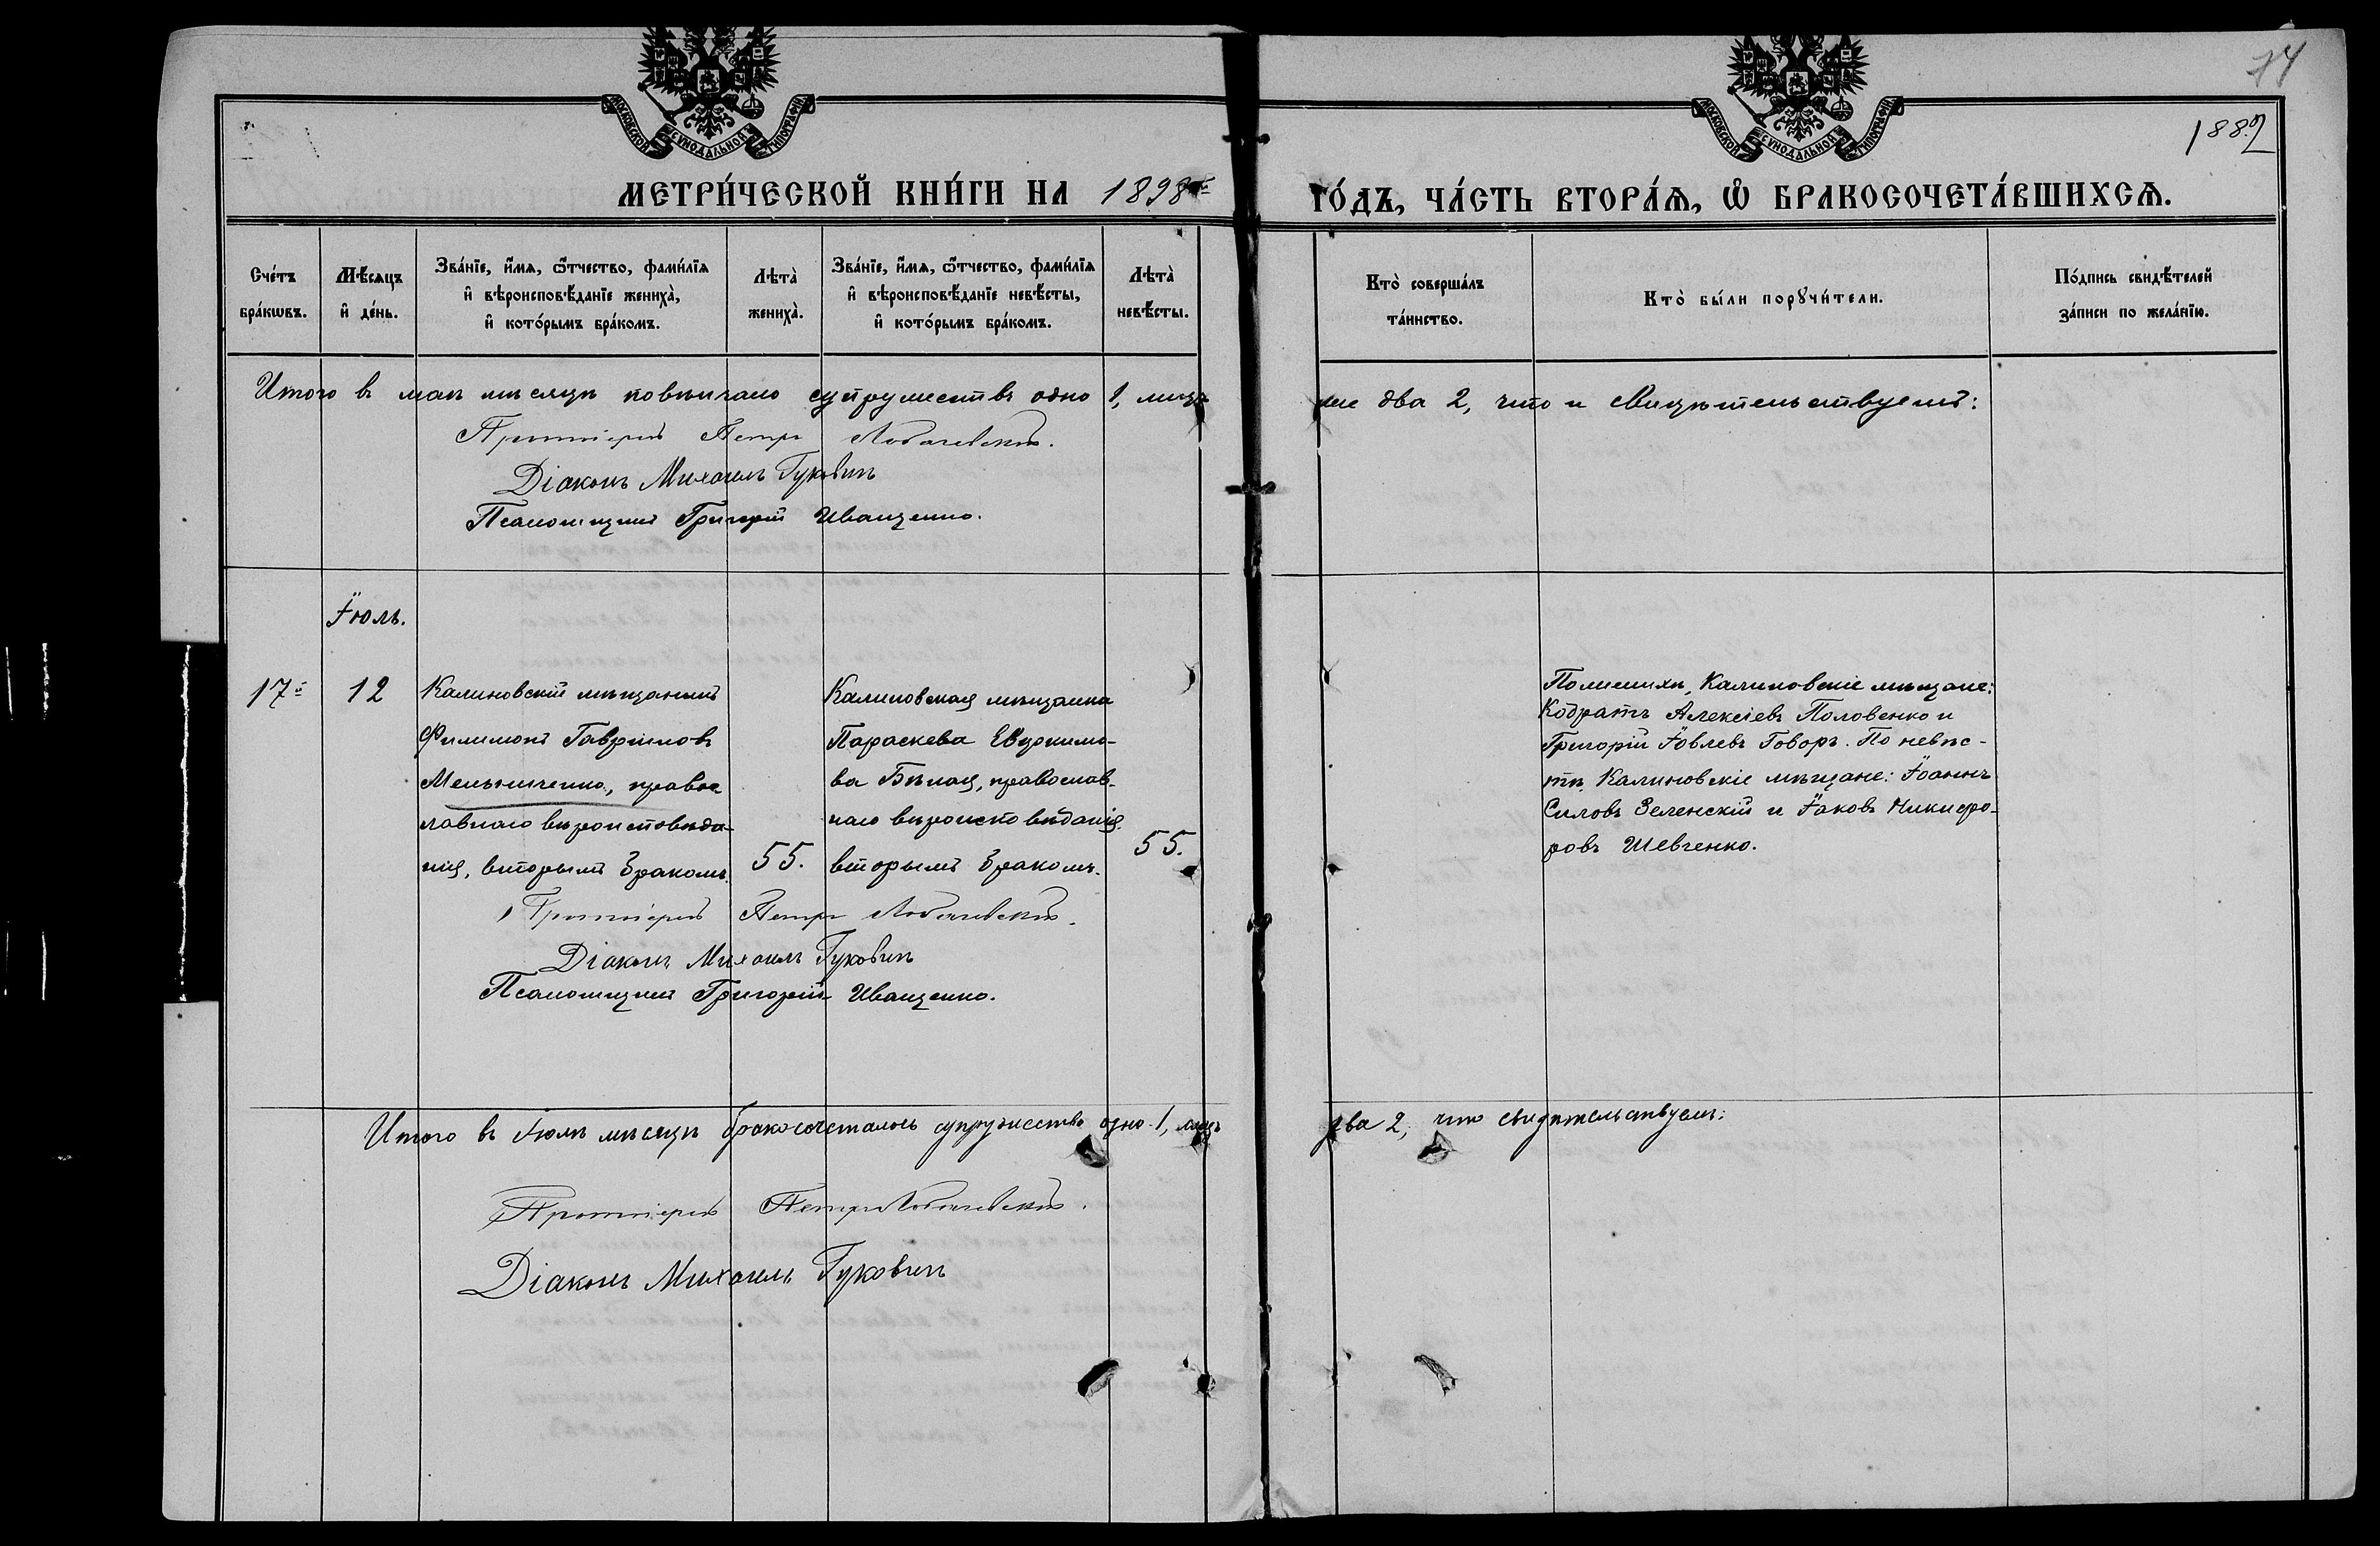 МОСКОВСКОЙ СѴНОДАЛЬНОЙ ТИПОГРАФІИ
МОСКОВСКОЙ СѴНОДАЛЬНОЙ ТИПОГРАФІИ
74
188
МЕТРИ́ЧЕСКОЙ КНИ́ГИ НА 1898й
ГО́ДЪ, ЧА́СТЬ ВТОРА́Ѧ, Ѽ БРАКОСОЧЕТА́ВШИХСѦ.
Сче́тъ
бра́кѡвъ.
Мѣ́сяцъ
и҆ де́нь.
Зва́нїе, и҆́мѧ, ѻ҆́тчество, фами́лїѧ
и҆ вѣроисповѣ́данїе жениха̀,
и҆ кото́рымъ бра́комъ.
Лѣта̀
жениха̀.
Зва́нїе, и҆́мѧ, ѻ҆́тчество, фами́лїѧ
и҆ вѣроисповѣ́данїе невѣ́сты,
и҆ кото́рымъ бра́комъ.
Лѣта̀
невѣ́сты.
Кто̀ соверша́лъ
та́инство.
Кто̀ бы́ли порꙋчи́тели.
По́дпись свидѣ́телей
за́писи по жела́нїю.
Итого въ маѣ мѣсяцѣ повѣнчано супружествъ одно 1, лицъ
же два 2, что и свидѣтельствуемъ:
Протоіерей Петръ Лобачевскій.
Діаконъ Михаилъ Гуковичъ
Псаломщикъ Григорій Иващенко.
Іюль.
17й
12
Калиновскій мѣщанинъ
Филимонъ Гавріиловъ
Мельниченко, правос
лавнаго вѣроисповѣда-
нія, вторымъ бракомъ.
55.
Калиновская мѣщанка
Параскева Евдокимо-
ва Бѣлая, православ-
наго вѣроисповѣданія
вторымъ бракомъ.
55.
По женихѣ, Калиновскіе мѣщане:
Кодратъ Алексіевъ Половенко и
Григорій Іовлевъ Говоръ. По невѣс-
тѣ, Калиновскіе мѣщане: Іоаннъ
Силовъ Зеленскій и Іаковъ Никифо-
ровъ Шевченко.
Протоіерей Петръ Лобачевскій.
Діаконъ Михаилъ Гуковичъ
Псаломщикъ Григорій Иващенко.
Итого въ Іюлѣ мѣсяцѣ бракосочеталось супружество одно 1, лицъ
два 2, что свидѣтельствуемъ:
Протоіерей Петръ Лобачевскій.
Діаконъ Михаилъ Гуковичъ